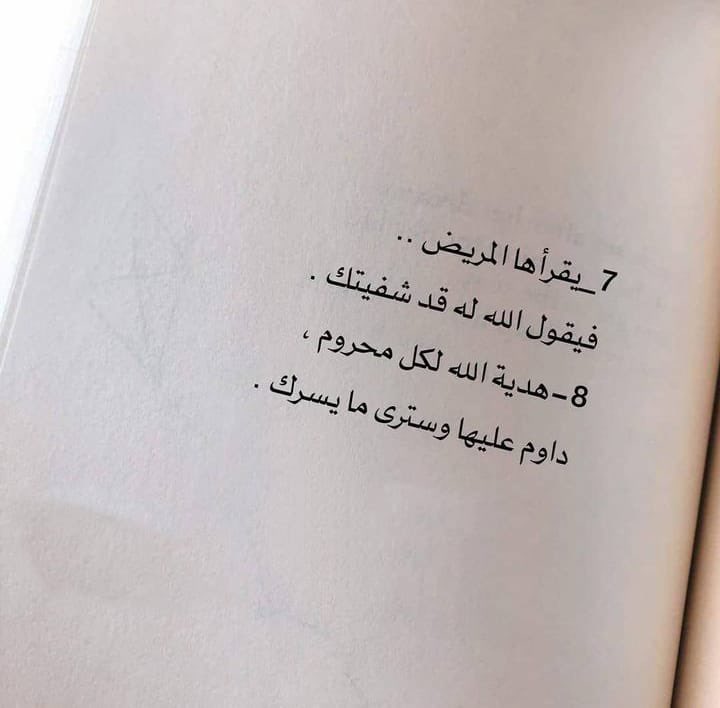 7_يقرأها المريض ..
فيقول الله له قد شفيتك .
8-هدية الله لكل محروم ،
داوم عليها وسترى ما يسرك .